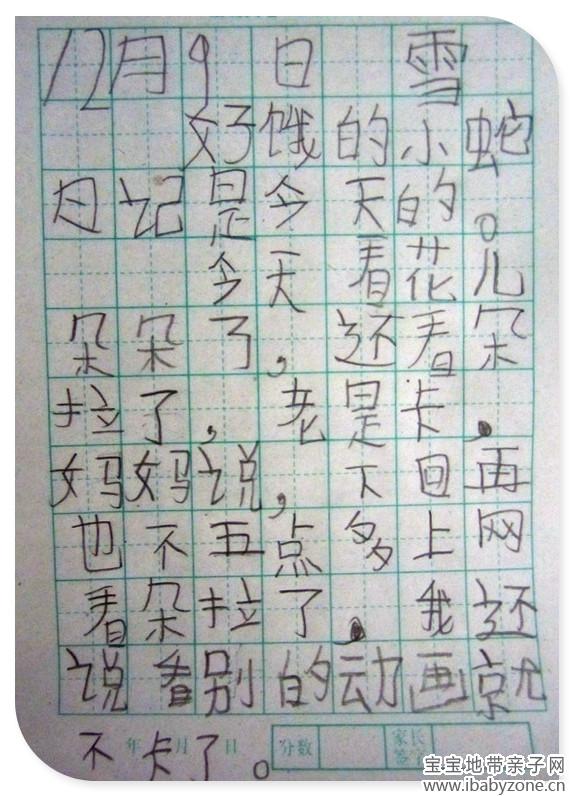 12月9日 雪
好饿的小蛇
日记是今天的。
今天看花儿
朵朵了,还看朵
拉了,老是卡,
妈妈说,下回再
也不五点多上网
看朵拉了。我还
说看别的动画就
不卡了。
年 月 日 分数 家长
宝宝地带亲子网
www.ibabyzone.cn